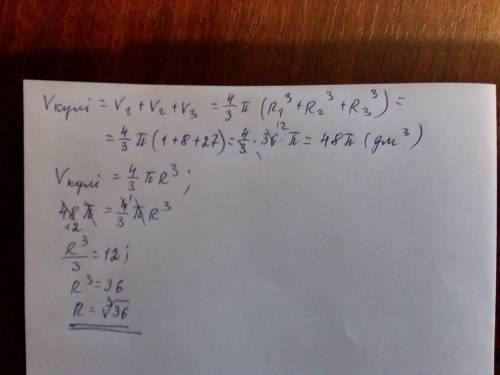 Vкулі = V₁ + V₂ + V₃ = 4/3 π (R₁³ + R₂³ + R₃³) =
= 4/3 π (1 + 8 + 27) = 4/3 · 36 12 · π = 48 π (дм³)
Vкулі = 4/3 π R³;
48 π = 4/3 π R³
12 1
R³/3 = 12;
R³ = 36
R = ∛36